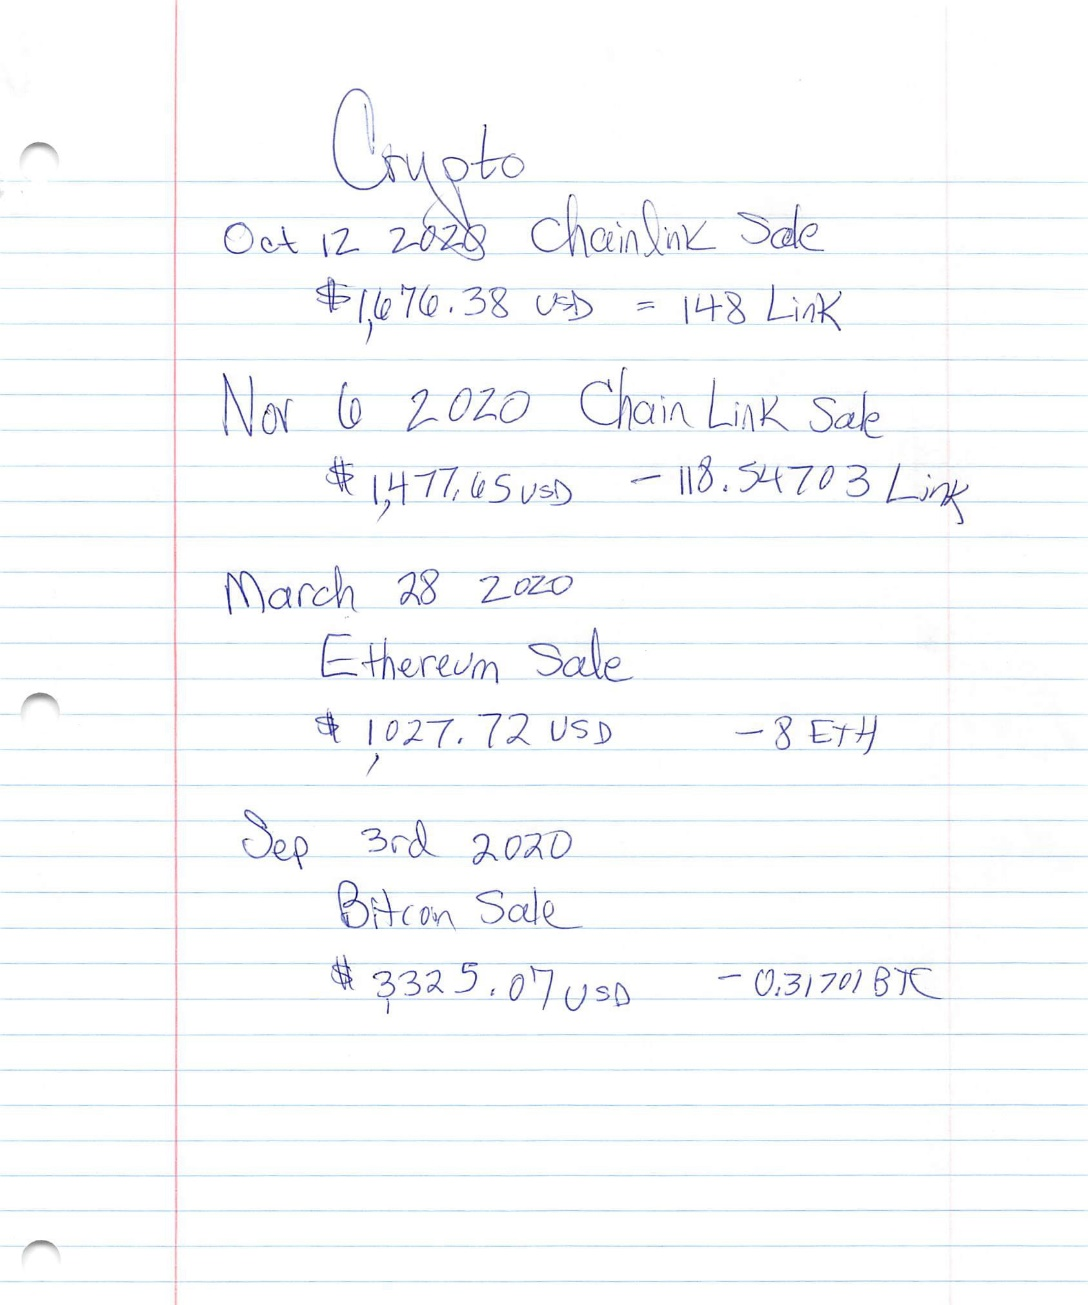 Crypto
Oct 12 2020 Chainlink Sale
$1,676.38 USD = 148 Link
Nov 6 2020 Chain Link Sale
$ 1,477.65 USD - 118.54703 Link
March 28 2020
Ethereum Sale
$ 1,027.72 USD - 8 ETH
Sep 3rd 2020
Bitcon Sale
$ 3,325.07 USD - 0.31701 BTC